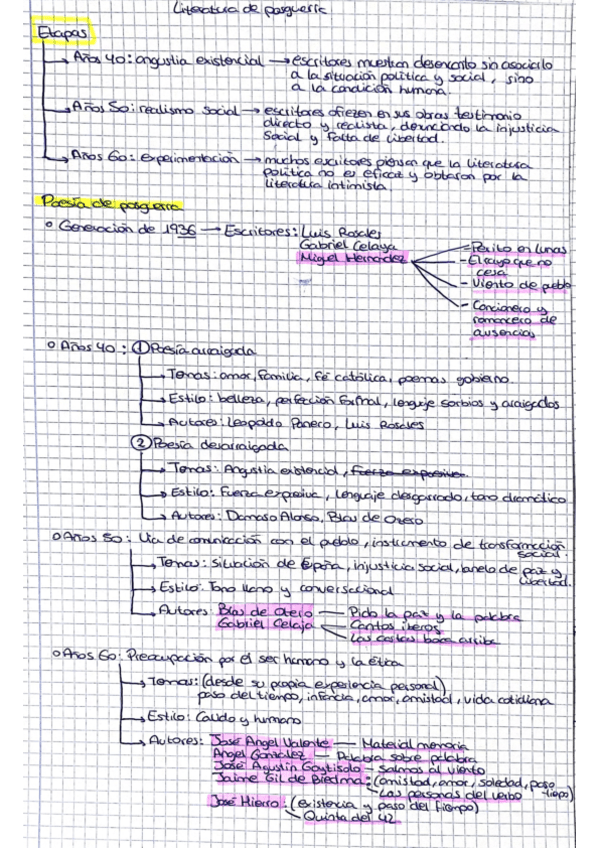 Literatura de posguerra
Etapas
Años 40: angustia existencial → escritores muestran desencanto sin asociarlo
a la situación política y social, sino
a la condición humana.
Años 50: realismo social → escritores ofrecen en sus obras testimonio
directo y realista, denunciando la injusticia
social y falta de libertad.
Años 60: experimentación → muchos escritores piensan que la literatura
política no es eficaz y optaron por la
literatura intimista.
Poesía de posguerra
Generación de 1936 → Escritores: Luis Rosales
Gabriel Celaya
Miguel Hernández
- Perito en lunas
- El rayo que no
cesa
- Viento de pueblo
- Cancionero y
romancero de
ausencias
Años 40: ① Poesía arraigada
Temas: amor, familia, fé católica, poemas gobierno.
Estilo: belleza, perfección formal, lenguaje sobrios y arraigados
Autores: Leopoldo Panero, Luis Rosales
② Poesía desarraigada
Temas: Angustia existencial, fuerza expresiva.
Estilo: Fuerza expresiva, lenguaje desgarrado, tono dramático
Autores: Damaso Alonso, Blas de Otero
Años 50: Vía de comunicación con el pueblo, instrumento de transformación
social.
Temas: situación de España, injusticia social, anelo de paz y
libertad.
Estilo: Tono llano y conversacional
Autores: Blas de Otero — Pido la paz y la palabra
Gabriel Celaja — Cantos iberos
Las cartas boca arriba
Años 60: Preocupación por el ser humano y la ética
Temas: (desde su propia experiencia personal)
paso del tiempo, infancia, amor, amistad, vida cotidiana
Estilo: Calido y humano
Autores: José Angel Valente — Material memoria
Angel González — Palabra sobre palabra
José Agustín Goytisolo — Salmos al viento
Jaime Gil de Biedma: (amistad, amor, soledad, paso
tiempo)
Las personas del verbo
José Hierro: (existencia y paso del tiempo)
Quinta del 42